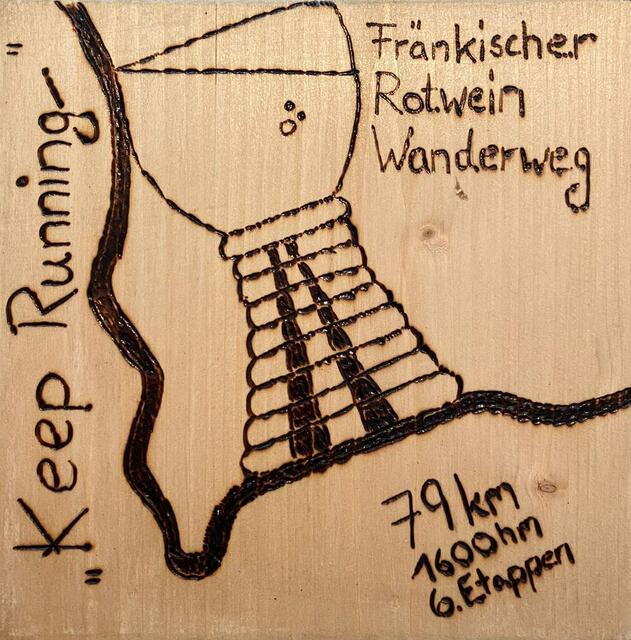 Fränkischer
Rotwein
Wanderweg
"Keep Running"
79 km
1600hm
6.Etappen